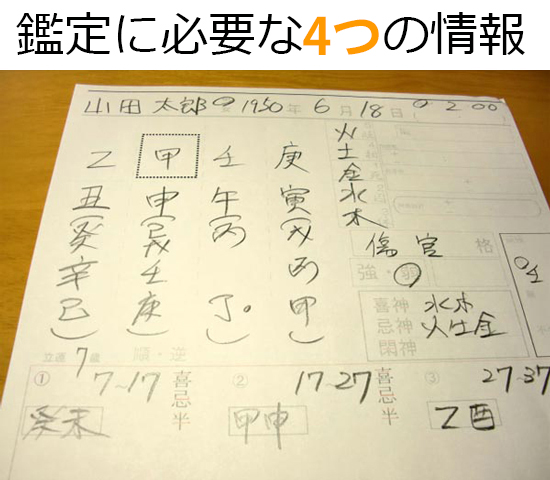 鑑定に必要な4つの情報
山田 太郎 1950年 6月 18日 2:00
乙 甲 壬 庚
丑 申 午 寅
(癸 (戊 (丙 (戊
辛 壬 丙
己) 庚) 丁。) 甲)
火
土
金
水
木
傷官 格
強・弱
喜神 水木
忌神 火土金
閑神
立運 7歳 順・逆
① 7~17 喜忌半
癸未
② 17~27 喜忌半
甲申
③ 27~37
乙酉